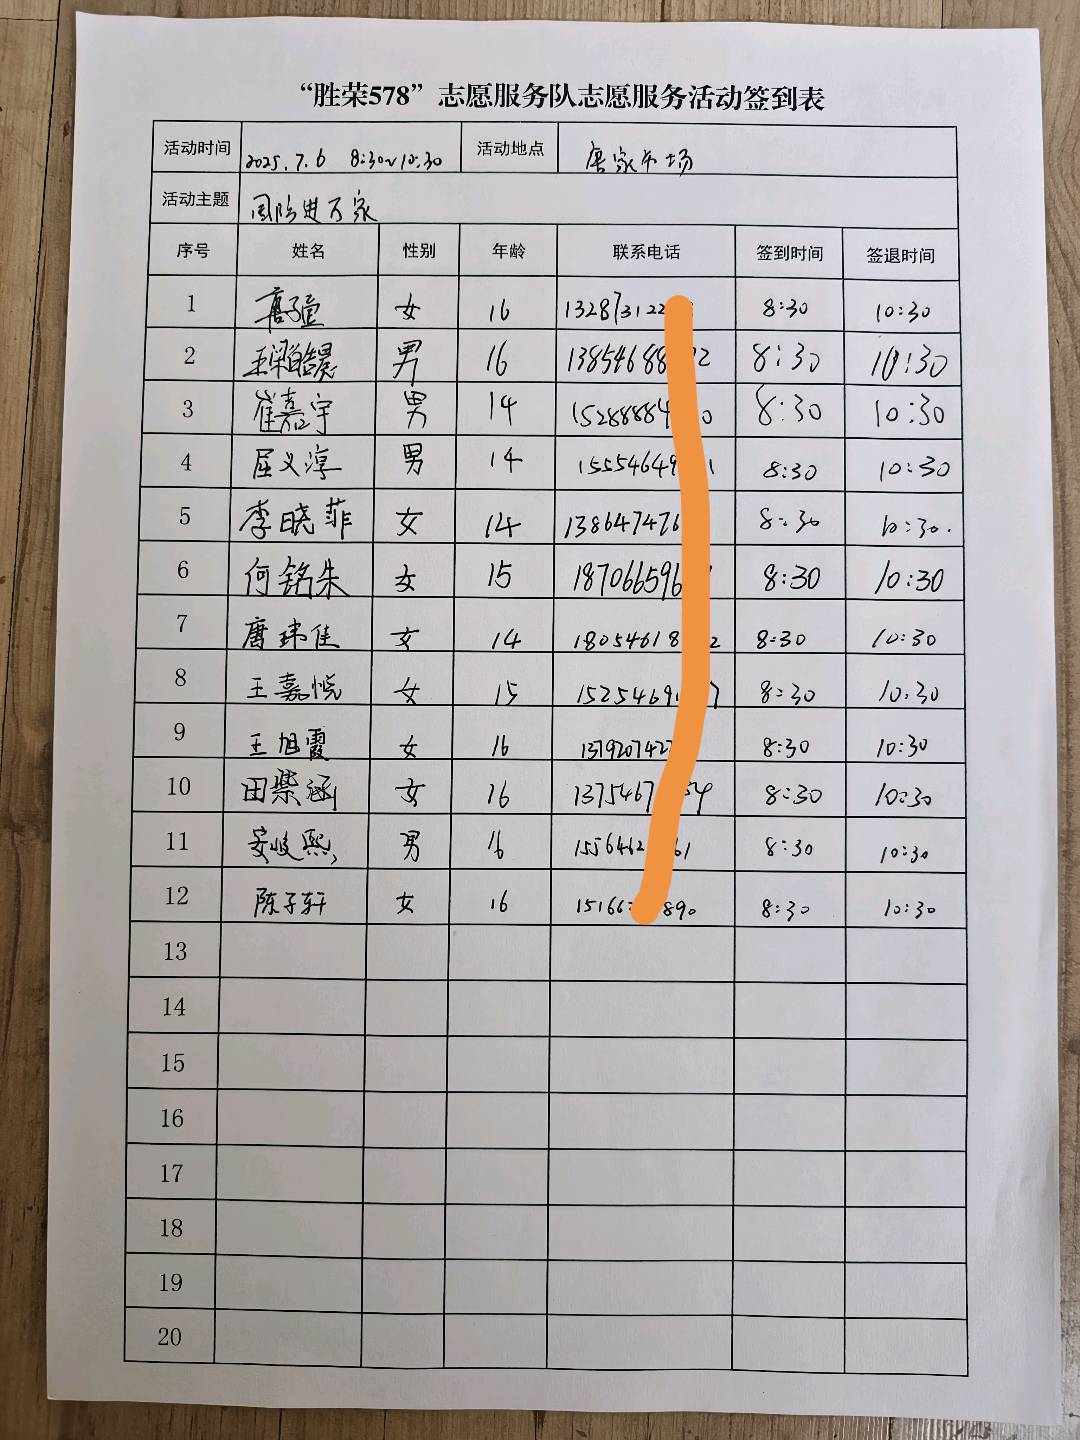 “胜荣578”志愿服务队志愿服务活动签到表
活动时间 2025.7.6 8:30~10:30 活动地点 唐家市场
活动主题 国防进万家
序号 姓名 性别 年龄 联系电话 签到时间 签退时间
1 女 16 132873122 8:30 10:30
2 王梁皓晨 男 16 13854688 2 8:30 10:30
3 崔嘉宇 男 14 15288884 0 8:30 10:30
4 屈义淳 男 14 15554649 1 8:30 10:30
5 李晓菲 女 14 138647476 8:30 10:30.
6 何铭朱 女 15 187066596 8:30 10:30
7 唐玮佳 女 14 18054618 2 8:30 10:30
8 王嘉悦 女 15 1525469 7 8:30 10:30
9 王旭霞 女 16 137920742 8:30 10:30
10 田紫涵 女 16 1375467 4 8:30 10:30
11 安峻熙 男 16 1556462 61 8:30 10:30
12 陈子轩 女 16 15166 890 8:30 10:30
13
14
15
16
17
18
19
20